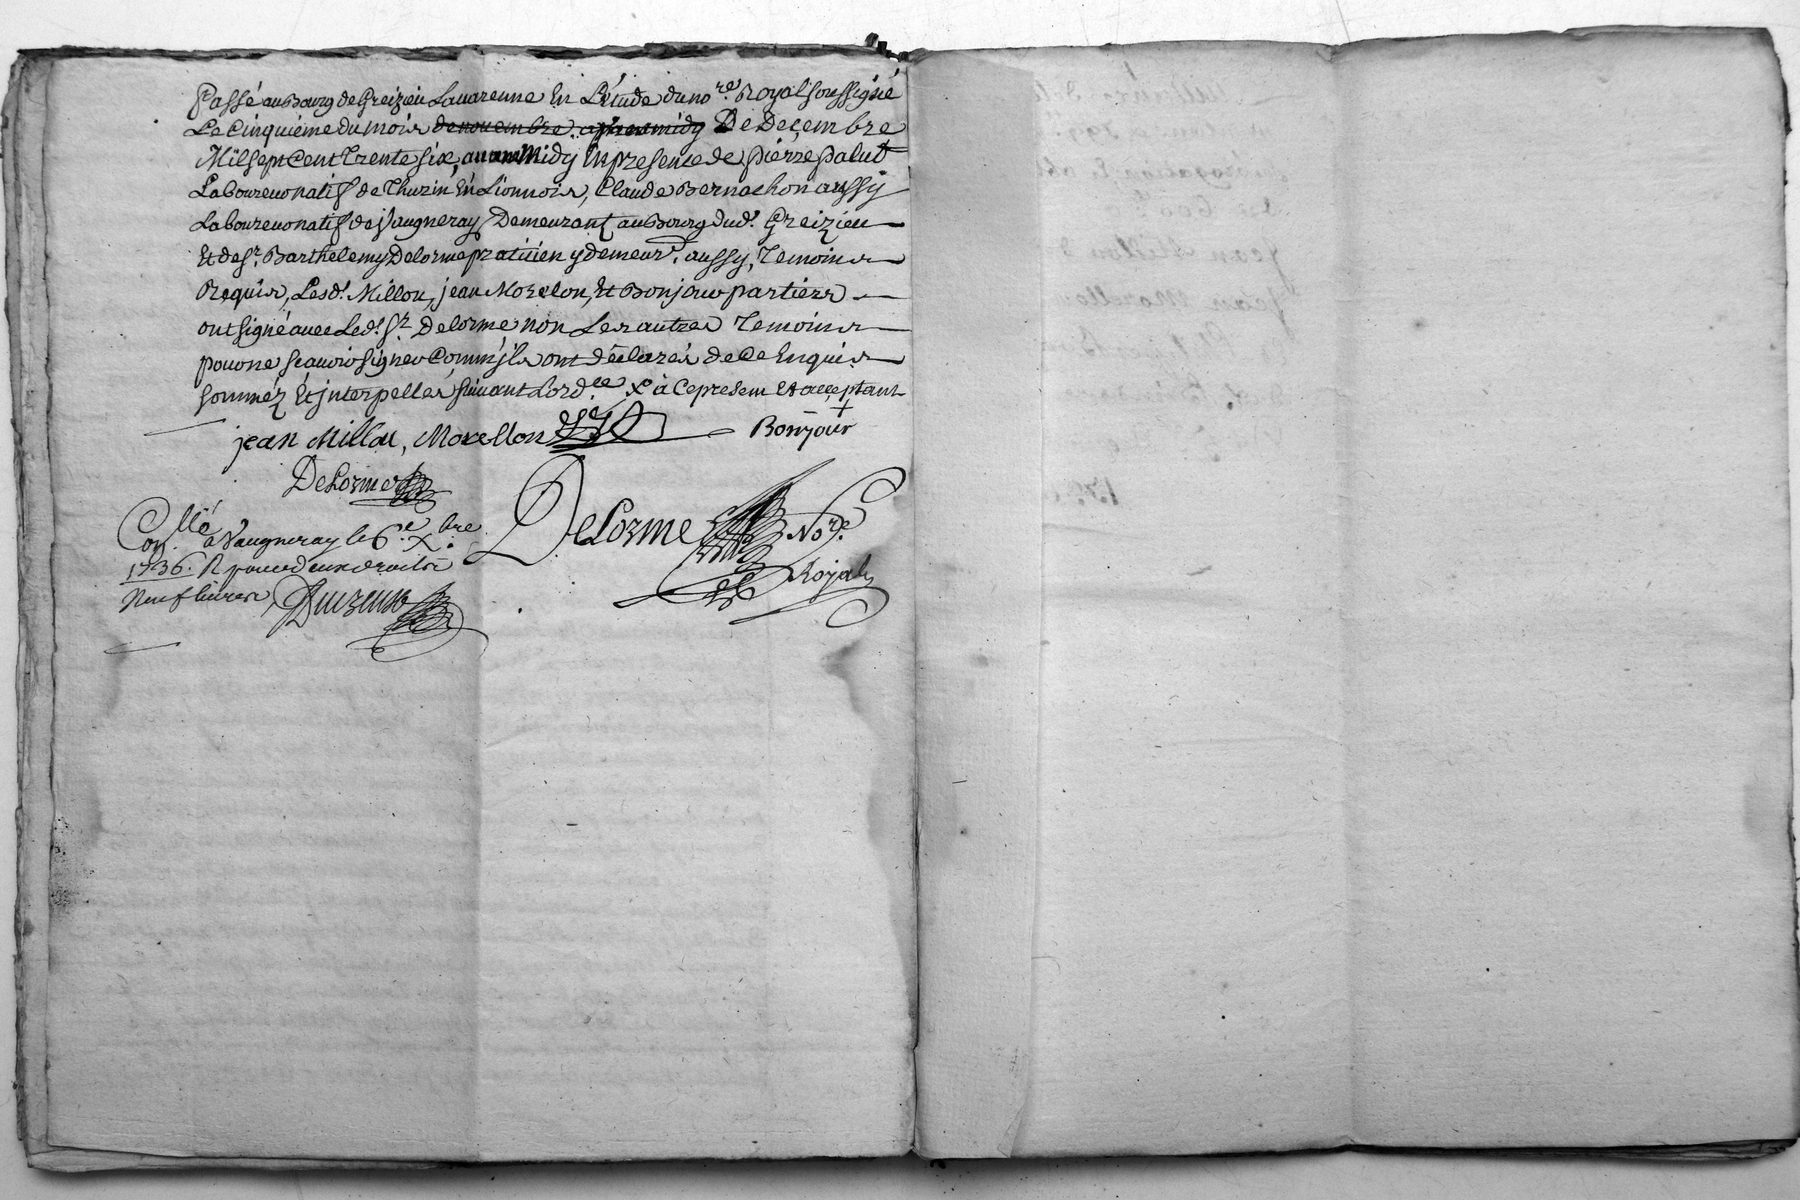 Passé au Bourg de Greizieu Lavarenne En L'étude du no.re Royal soussigné
Le Cinquieme du mois de novembre apres midy De Deçembre
Mil sept Cent Trente six, avant Midy En presence de pierre palut
Laboureur natif de Thurin, En Lionnois, Claude Bernachon aussy
Laboureur natif de Vaugneray Demeurant au Bourg dud.t Greizieu
Et de S.r Barthelemy Delorme praticien y demeur.t aussy, Temoins
Requis, Lesd.t Millou, jean Morellon, Et Bonjour partiers
ont signé avec Led.t S.r Delorme non Les autres Temoins
pour ne sçavoir signer Comm'jls ont déclarés de Ce Enquis
sommés Et jnterpellés suivant Lord.ce X à Ce present Et acceptant
jean Millou, Morellon Bonjour
DeLorme
DeLorme No.re
Royal
Con.llé à Vaugneray le 6.e X.bre
1736. R pour deux droits
Neuf livres